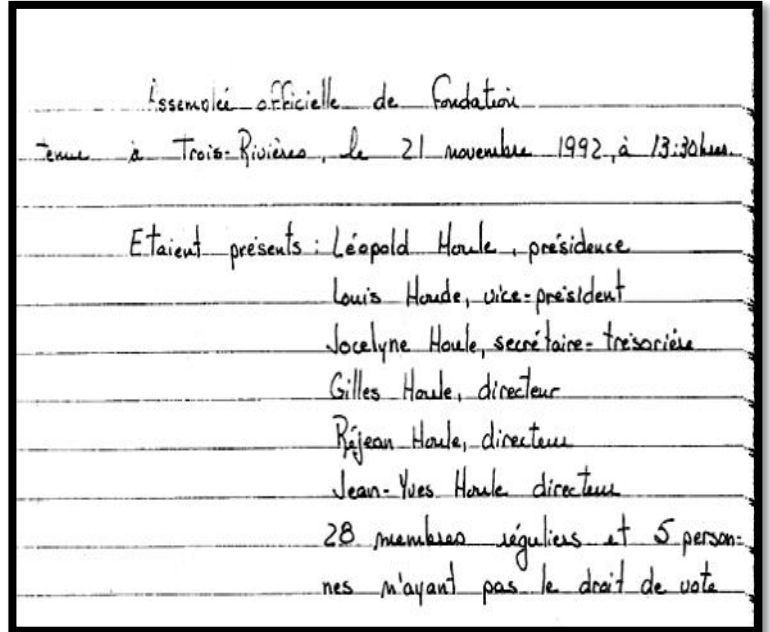 Assemblée officielle de fondation
tenue à Trois-Rivières, le 21 novembre 1992, à 13:30 hres.
Etaient présents : Léopold Houle, présidence
Louis Houde, vice-président
Jocelyne Houle, secrétaire-trésorière
Gilles Houle, directeur
Réjean Houle, directeur
Jean-Yves Houle directeur
28 membres réguliers et 5 person-
nes n'ayant pas le droit de vote